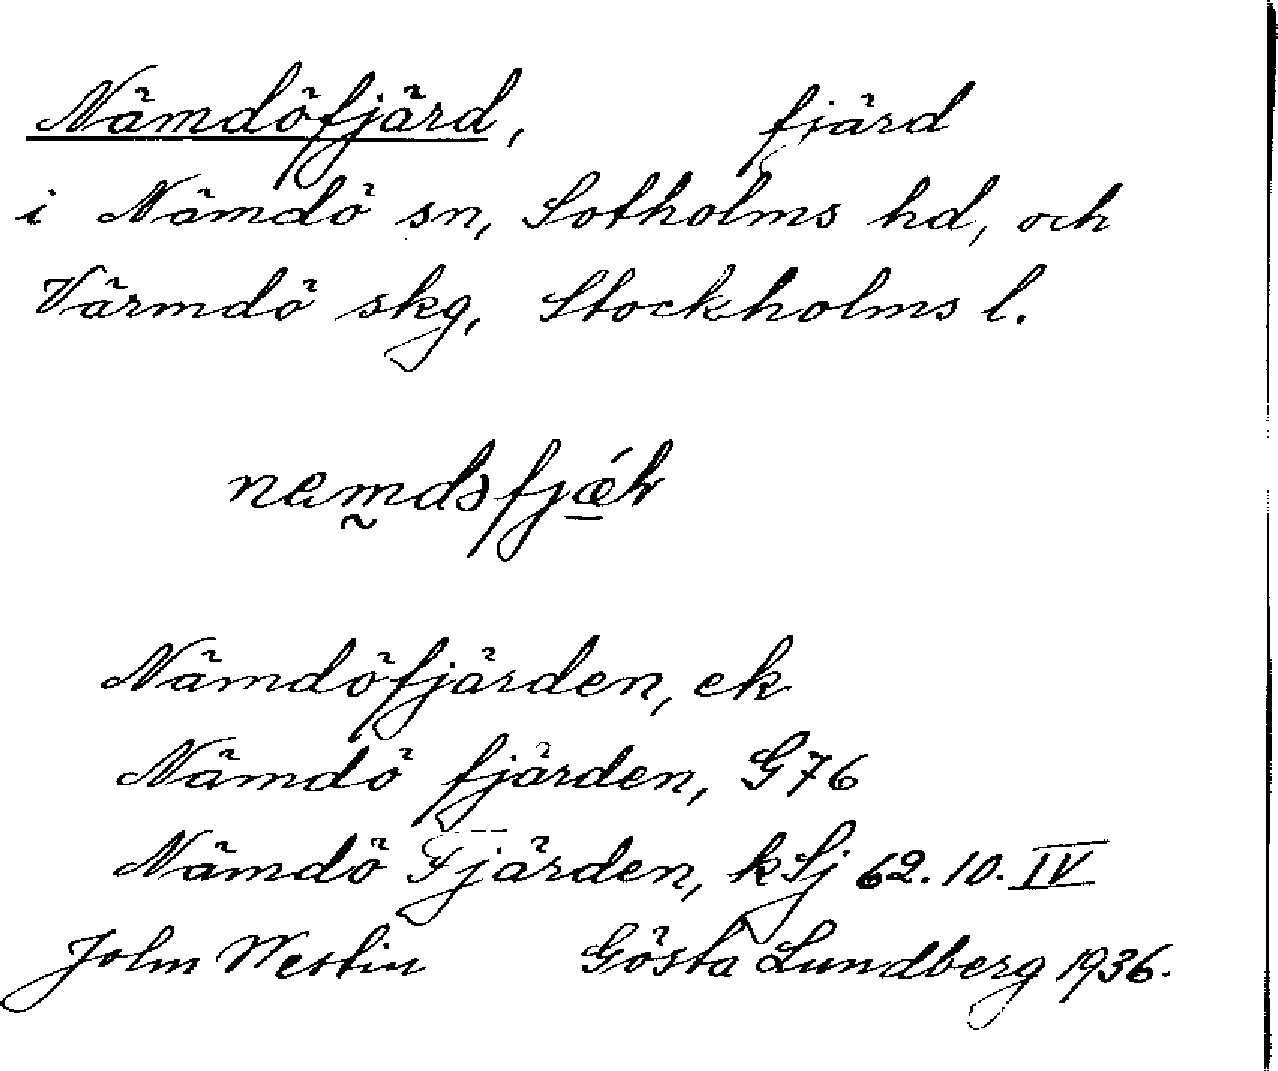 Nämdöfjärd, fjärd
i Nämdö sn, Sotholms hd, och
Värmdö skg, Stockholms l.
Nämdöfjärden, ek
Nämdö fjärden, G76
Nämdö Fjärden, kSj 62.10.IV
John Westin Gösta Lundberg 1936.